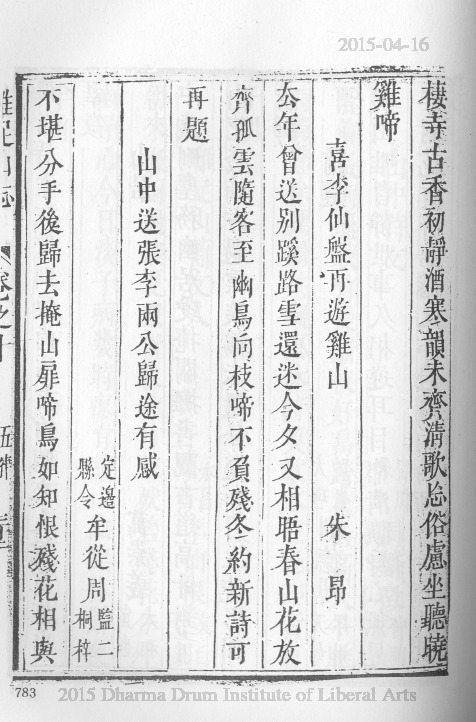 2015-04-16
棲寺古香初靜酒寒韻未齊清歌忘俗慮坐聽曉
雞啼
喜李仙盤再遊雞山 朱昂
去年曾送別蹊路雪還迷今夕又相晤春山花放
齊孤雲隨客至幽鳥向枝啼不負殘冬約新詩可
再題
山中送張李兩公歸途有感
定邊縣令牟從周監二桐梓
不堪分手後歸去掩山扉啼鳥如知恨殘花相與
雞足山志 卷之十
783
2015 Dharma Drum Institute of Liberal Arts